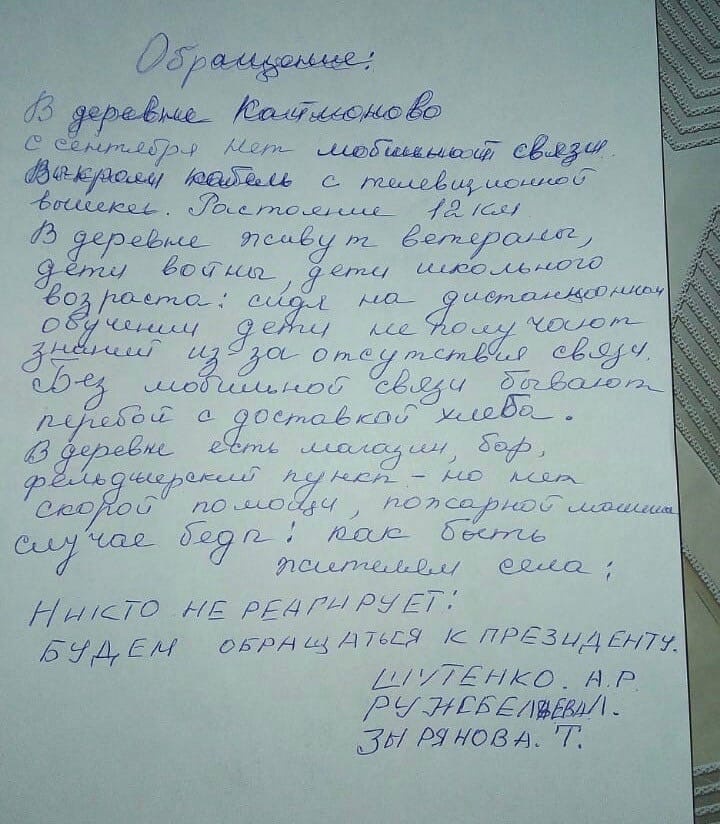 Обращение:
В деревне Каймоново
с сентября нет мобильной связи.
Выкрали кабель с телевиционной
вышеки. Растояние 12 км
В деревне живут ветераны,
дети войны, дети школьного
возраста: сидя на дистанционном
обучении дети не получают
знаний из-за отсутствия связи.
Без мобильной связи бывают
перебой с доставкой хлеба.
В деревне есть магазин, бар,
фельджерский пункт - но нет
скорой помощи, пожарной машины
случае беды! как быть
жителям села:
НИКТО НЕ РЕАГИРУЕТ!
БУДЕМ ОБРАЩАТЬСЯ К ПРЕЗИДЕНТУ.
ШУТЕНКО. А.Р.
Л.
ЗЫРЯНОВА. Т.